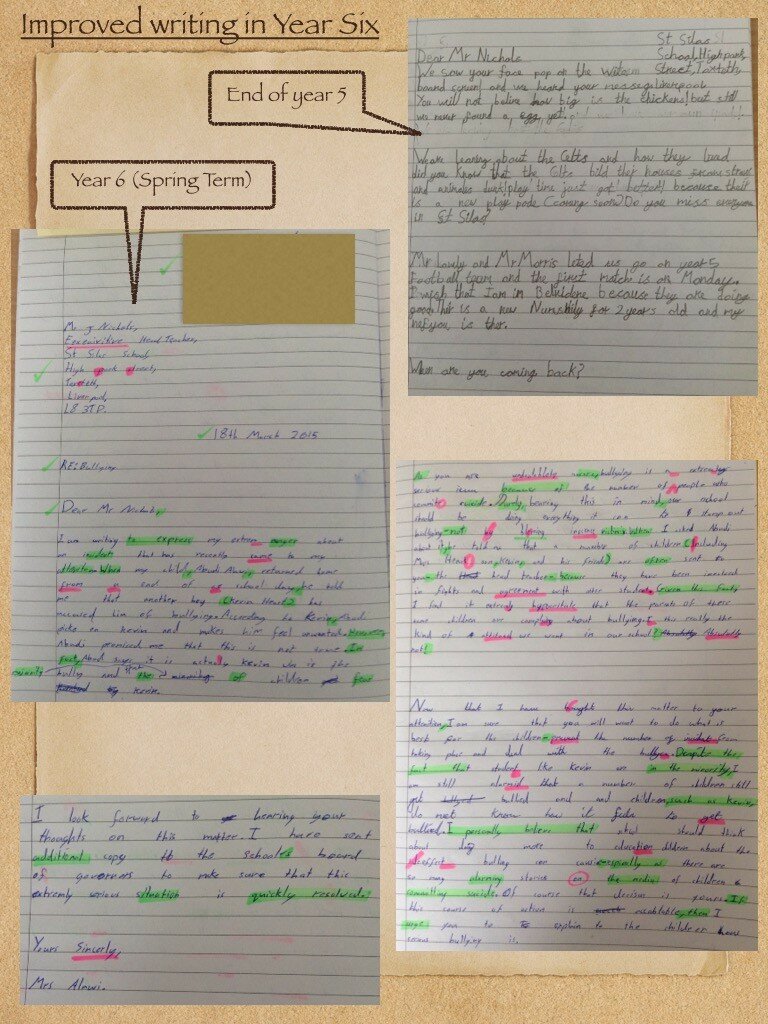 Improved writing in Year Six
End of year 5
St Silas
Dear Mr Nichols
School, High park
We sow your face pop on the
Street, Toxteth,
board screen and we heard your messege liverpool
You will not belive how big is the chickens! but still
we never found a egg yet.
We are learing about the Celts and how they lived
did you know that the Clts bild ther houses
and animles dunk! play time just got better! because their
is a new play mode (coming soon) Do you miss everyone
in St Silas?
Mr Lovely and Mr Morris leted us go on year 5
Football team and the first match is on Monday.
I wish that I am in Belvidere because they are doing
good. Ther is a new for 2 years old and my
nefyou is ther.
When are you coming back?
Year 6 (Spring Term)
Mr J Nichols,
Exexuitive Head Teacher,
St Silas School
High park street,
Toxteth,
Liverpool,
L8 3TP.
18th March 2015
RE: Bullying
Dear Mr Nichols,
I am writing to express my extrem anger about
an incident that has recently came to my
attention. When my child, Abadi Alawi, returned home
from a end of school day, he told
me that another boy (Kevin Heart) has
accused him of bullying. According to Kevin, Abadi
picke on kevin and makes him feel unwanted. However,
Abadi promised me that this is not true. In
fact, Abadi says it is actualy kevin who is the
bully and that the of children fear
minority
Kevin.
As you are undoubtably bullying is a extremley
serious issue because of the number of people who
commit suicide. Surly, bearing this in mind, our school
should be doing everything it can to stamp out
bullying not I asked Abadi
about it, he told me that a number of children (including
Mrs Heart son, kevin, and his friends) are often sent to
you the head teacher because they have been involved
in fights and agreement with other students. Given this facts
I find it extremly hypocritale that the parents of these
same children are complaing about bullying. Is this really the
kind of attitued we want in our school? Absolutly
not!
Now that I have bought this matter to your
attention, I am sure that you will want to do what is
best for the children - prevent the number of incidet from
taking place and deal with the bullyes. Despite the
fact that students like Kevin are in the minority, I
am still alarmed that a number of children still
get bullied and and children, such as Kevin,
do not know how it feels to get
bullied. I personally believe that shcol should think
about doing more to education children about the
effect bulling can cause espically as there are
so many alarming stories on the media of children
comaiting suicide. Of course that decison is yours. If
this course of action is then I
urge you to explain to the children how
serous bullying is.
I look forward to hearing your
thoughts on this matter. I have sent
additional copy to the schools board
of governors to make sure that this
extremly serious situation is quickly resolved.
Yours Sincerly,
Mrs Alawi.